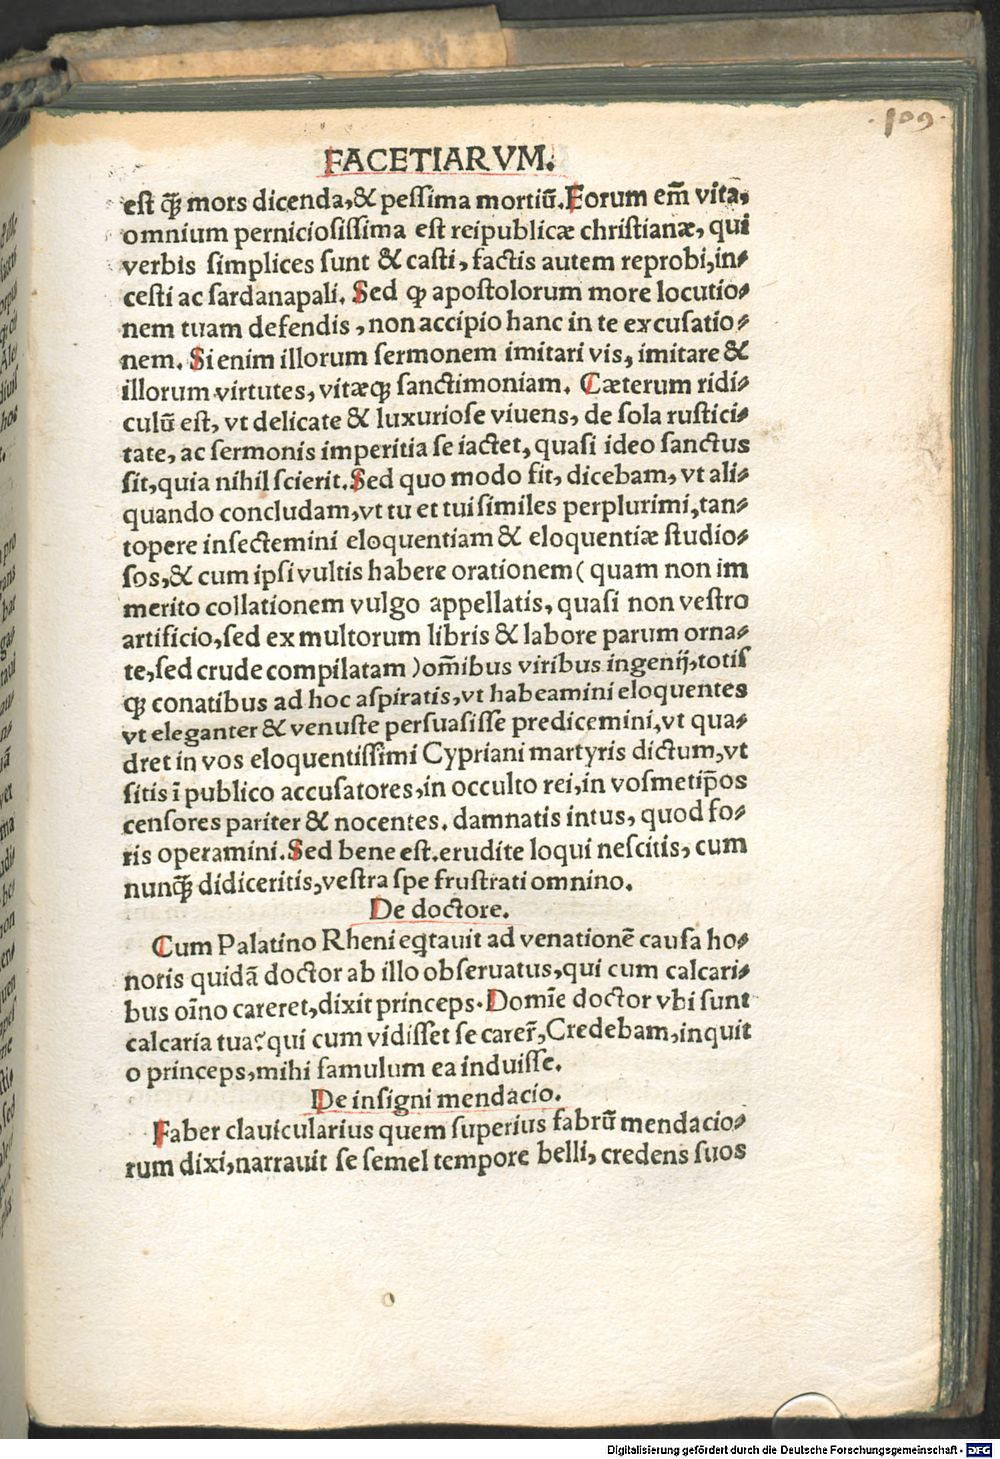 ·109·
FACETIARVM.
est q̄ꝫ mors dicenda,& peſſima mortiū.Eorum em̄ vita,
omnium pernicioſiſſima est reipublicæ christianæ, qui
verbis ſimplices ſunt & casti, factis autem reprobi,in⸗
cesti ac ſardanapali. Sed ꝙ apostolorum more locutio⸗
nem tuam defendis, non accipio hanc in te excuſatio⸗
nem. Si enim illorum ſermonem imitari vis, imitare &
illorum virtutes, vitæqꝫ ſanctimoniam. Cæterum ridi⸗
culū est, vt delicate & luxurioſe viuens, de ſola rustici⸗
tate, ac ſermonis imperitia ſe iactet, quaſi ideo ſanctus
ſit,quia nihil ſcierit.Sed quo modo fit, dicebam, vt ali⸗
quando concludam,vt tu et tui ſimiles perplurimi,tan⸗
topere inſectemini eloquentiam & eloquentiæ studio⸗
ſos,& cum ipſi vultis habere orationem( quam non im
merito collationem vulgo appellatis, quaſi non vestro
artificio,ſed ex multorum libris & labore parum orna⸗
te,ſed crude compilatam )om̄ibus viribus ingenij,totiſ
qꝫ conatibus ad hoc aſpiratis,vt habeamini eloquentes
vt eleganter & venuste perſuaſiſſe predicemini,vt qua⸗
dret in vos eloquentiſſimi Cypriani martyris dictum,vt
ſitis ī publico accuſatores,in occulto rei,in voſmetip̄os
cenſores pariter & nocentes. damnatis intus, quod fo⸗
ris operamini.Sed bene est.erudite loqui neſcitis, cum
nunq̄ꝫ didiceritis,vestra ſpe frustrati omnino.
De doctore.
Cum Palatino Rheni eqͥtauit ad venationē cauſa ho⸗
noris quidā doctor ab illo obſeruatus,qui cum calcari⸗
bus oīno careret,dixit princeps.Domīe doctor vbi ſunt
calcaria tua? qui cum vidiſſet ſe carer̄,Credebam,inquit
o princeps,mihi famulum ea induiſſe.
De inſigni mendacio.
Faber clauicularius quem ſuperius fabrū mendacio⸗
rum dixi,narrauit ſe ſemel tempore belli, credens ſuos
Digitalisierung gefördert durch die Deutsche Forschungsgemeinschaft - DFG